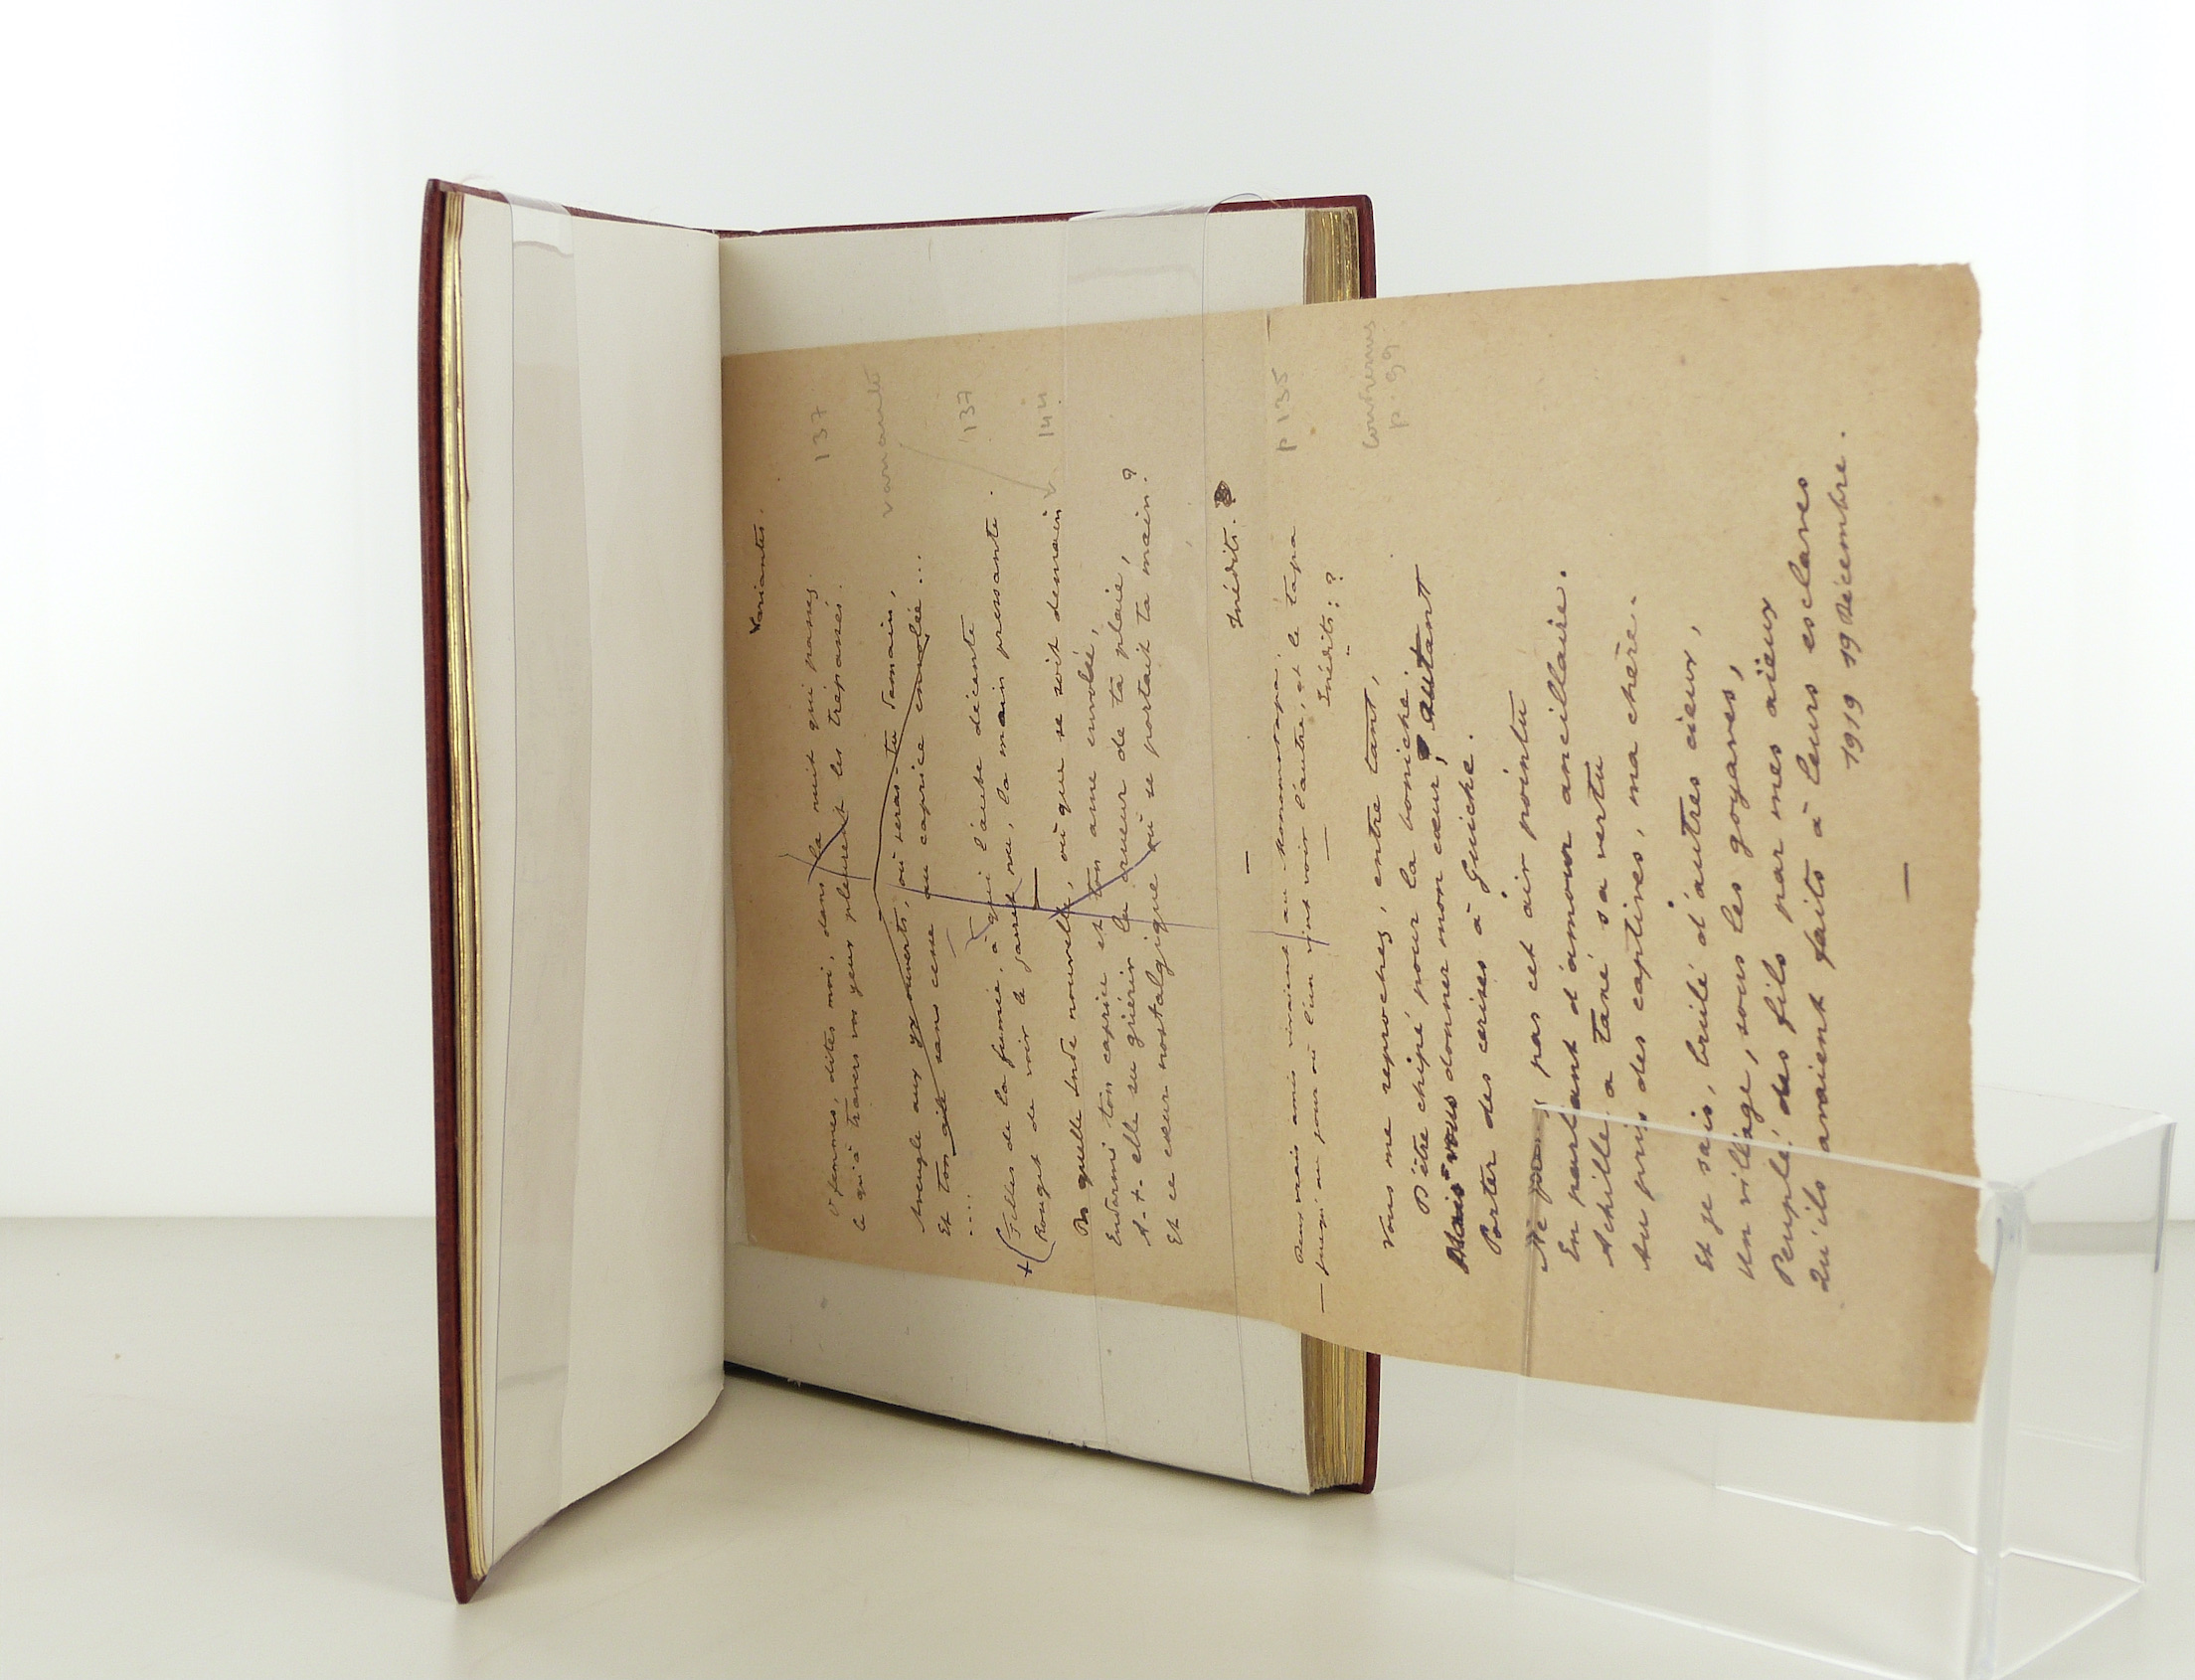 Variantes.
137
O femmes, dites moi, dans la nuit qui passez
Ce qu'à travers vos yeux pleurent les trépassés.
variante
Aveugle aux yeux ouverts, où seras-tu demain,
Et ton aile sans cesse au caprice envolée...
....
137
+ Filles de la fumée, à qui l'aube décente
Rougit de voir le jarret nu, la main pressante.
144
En quelle Inde nouvelle, où que se soit demain
Endormi ton caprice et ton âme envolée,
A-t-elle su guérir la rueur de ta plaie,
Et ce cœur nostalgique où se portait ta main?
—
Inédits.
p 135
Deux vrais amis vivaient au Monomotapa,
— jusqu'au jour où l'un vint voir l'autre, et le tapa
— Inédits: ?
Contrerimes
p. 99
Vous me reprochez, entre tant,
D'être chipé pour la boniche.
Mais vous donner mon cœur, autant
Porter des cerises à Guiche.
Ne pas cet air pointu
En parlant d'amour ancillaire.
Achille a tané sa vertu
Au prix des captives, ma chère.
Et je sais, brûlé d'autres cieux,
Un village, sous les goyaves,
Peuplé des fils par mes aïeux
Qu'ils avaient faits à leurs esclaves
1919 19 Décembre.
—